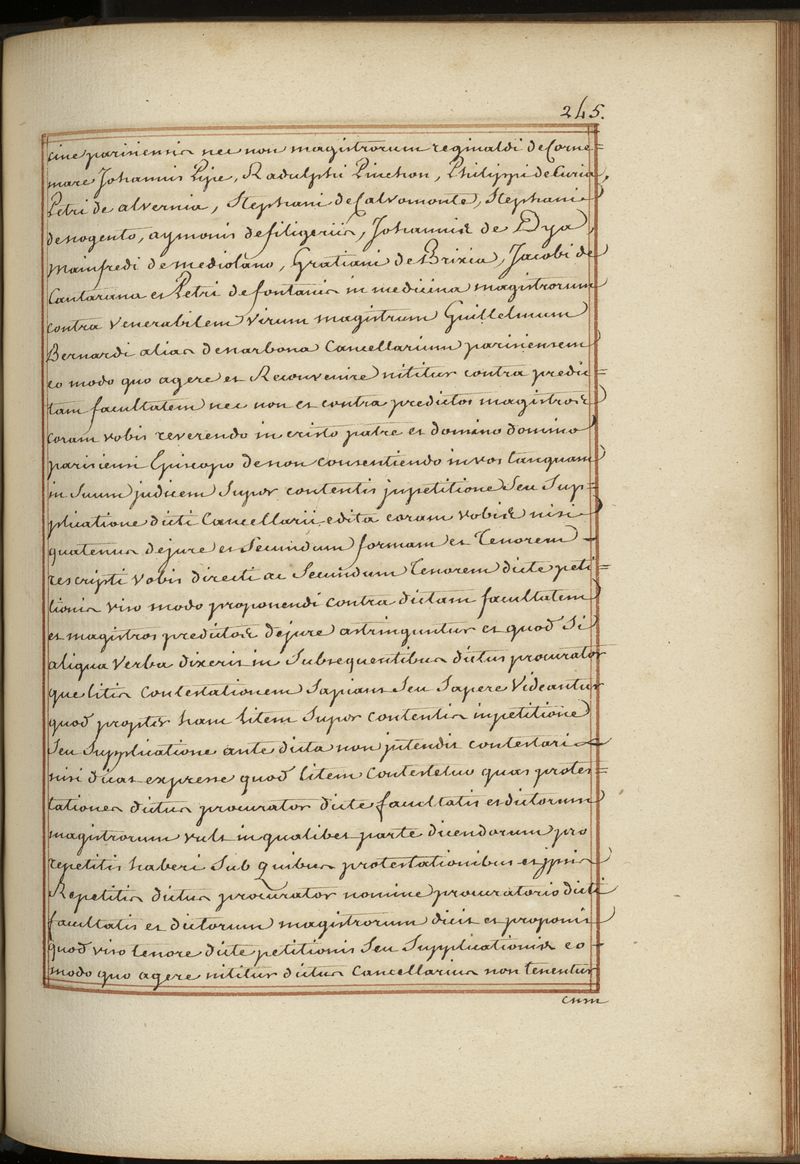 245.
cine parisiensis nec non magistrorum reginaldi de Corne=
mare Johannis Pipe, Radulphi Pinchon, Philippi de Curia,
Petri de alvernia, Stephani de Calvomonte, Stephani
de nogento, aymonis de filigeriis, Johannis de Dya,
Mainfredi de mediolano, Gratiani de Brixia, Jacobi de
Cantarana et Petri de fontanis in medicina magistrorum
contra Venerabilem Virum magistrum Guillelmum
Bernardi alias denarbona Cancellarium parisiensem
eo modo quo agere et Reconvenire nititur contra predic=
tam facultatem nec non et contra predictos magistros
coram vobis reverendo in cristo patre et domino domino
parisiensi Episcopo de non consentiendo in vos tanquam
in Suum judicem Super contentis in petitione Seu Sup=
plicatione dicti Cancellarii edita coram vobis nisi
quatenus dejure et Secundum formam et Tenorem
rescripti vobis directi ac Secundum Tenorem dicte peti=
tionis viso modo proponendi contra dictam facultatem
et magistros predictos dejure astringuntur et quod Si
aliqua Verba dixerit in Subsequentibus dictus procurator
que litis Contestationem Sapiant Seu Sapere Videantur
quod propter ham litem Super contentis inpetitione
Seu Supplicatione ante dicta non intendit contestari
nisi dicat expresse quod litem Contestetur quas protes=
tationes dictus procurator dicte facultatis et dictorum
magistrorum vult in qualibet parte dicendorum pro
repetitis haberi Sub quibus protestationibus et ipsis
Repetitis dictus procurator nomine procuratorio dicti
facultatis et dictorum magistrorum dicit et proponit
quod viso tenore dicte petitionis Seu Supplicationis eo
modo quo agere nititur dictus Cancellarius non tenentur
cum